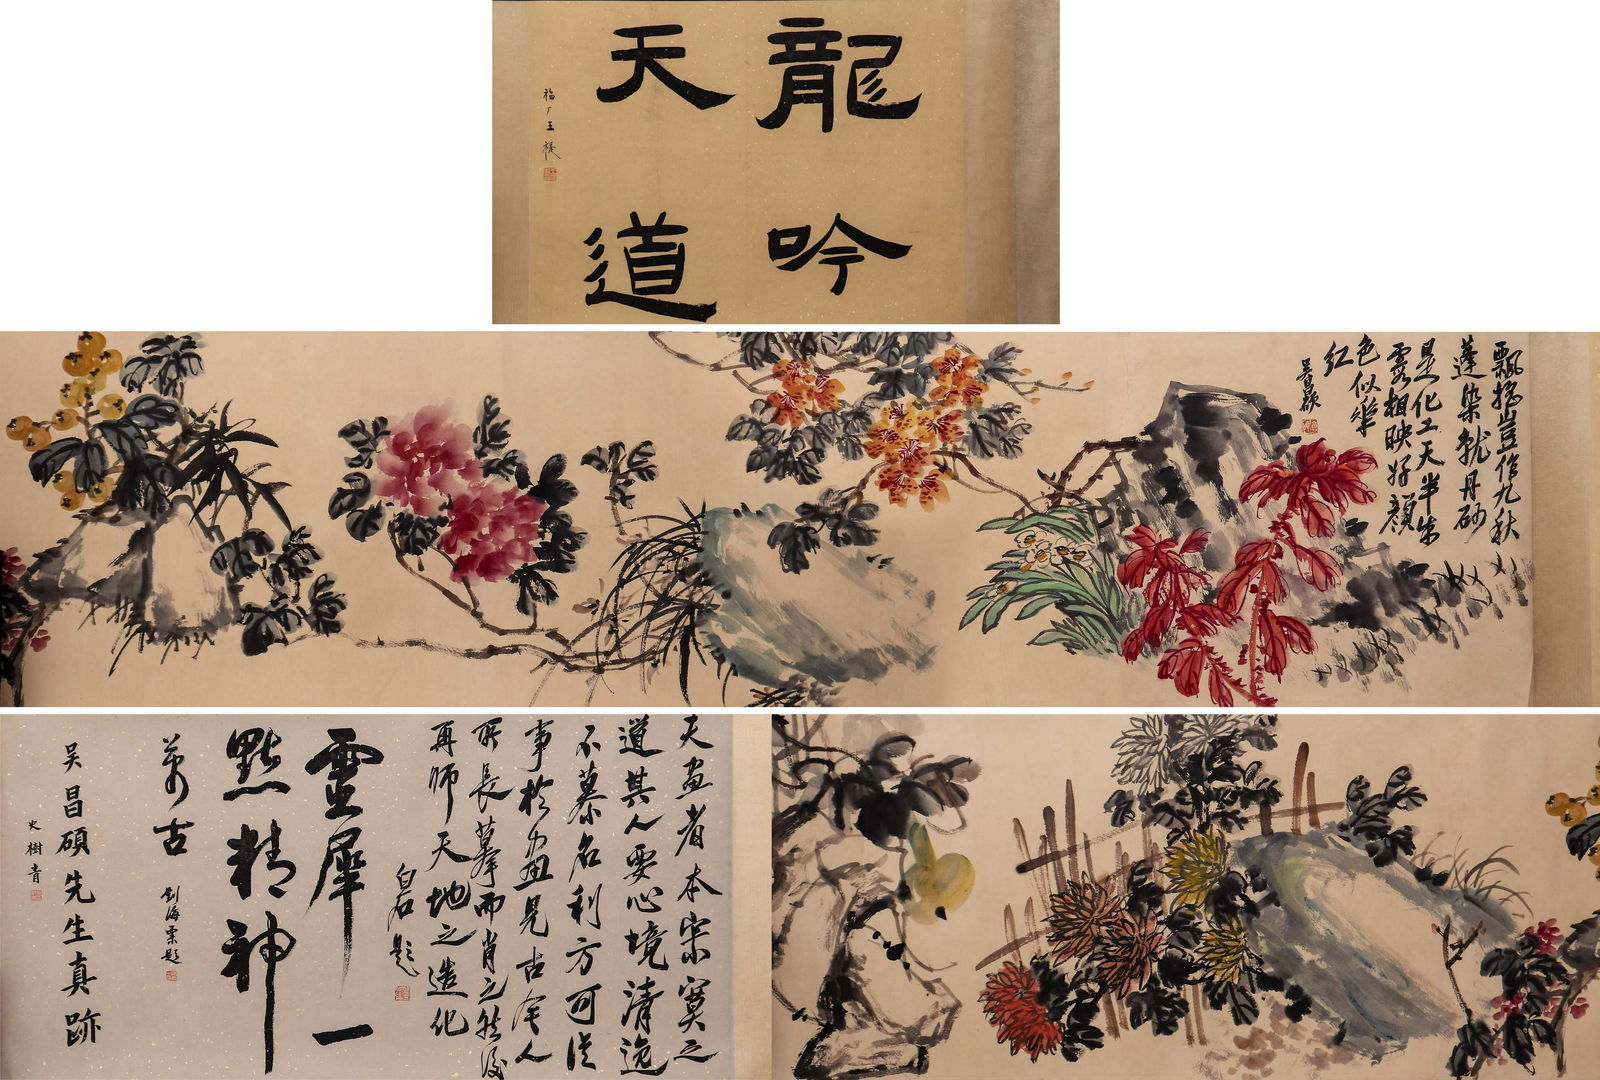 龍吟
天道
福厂王禔
飄搖豈作九秋
蓬染就丹砂
是化工天半朱
霞相映好顏
色似華
紅
吳昌碩
夫畫者本寂寞之
道其人要心境清逸
不慕名利方可從
事於畫見古今人
所長摹而肖之然後
再師天地之造化
白石題
靈犀一
點精神
萬古
劉海粟題
吳昌碩先生真跡
史樹青